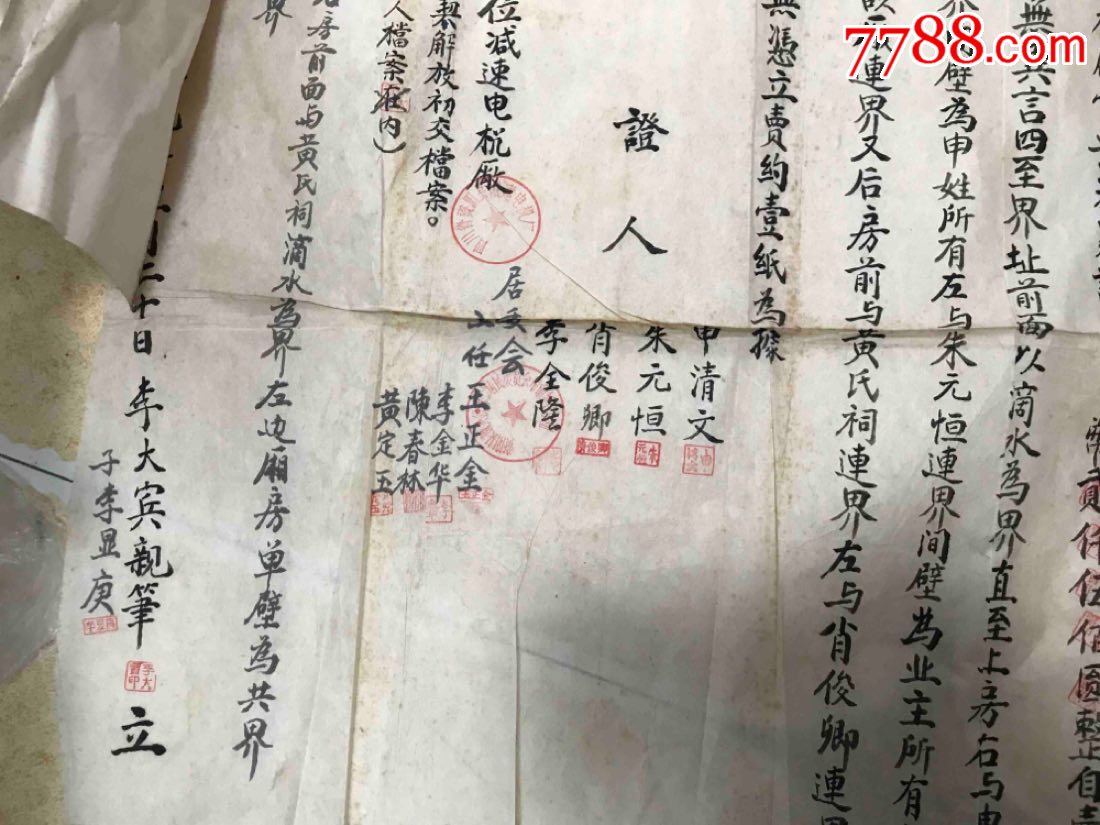 7788.com
贰仟伍佰圆整自卖
無異言四至界址前面以滴水為界直至上房右与
壁為申姓所有左与朱元恒連界间壁为业主所有
連界又后房前与黄氏祠連界左与肖俊卿連界
無憑立賣約壹纸為據
證人
申清文
朱元恒
肖俊卿
李全隆
居委会
主任王正金
李金华
陳春林
黄定五
位减速电机厰
契解放初交檔案。
人檔案在内）
房前面与黄氏祠滴水為界左边厢房单壁為共界
界
二十日李大宾親筆立
子李显庚